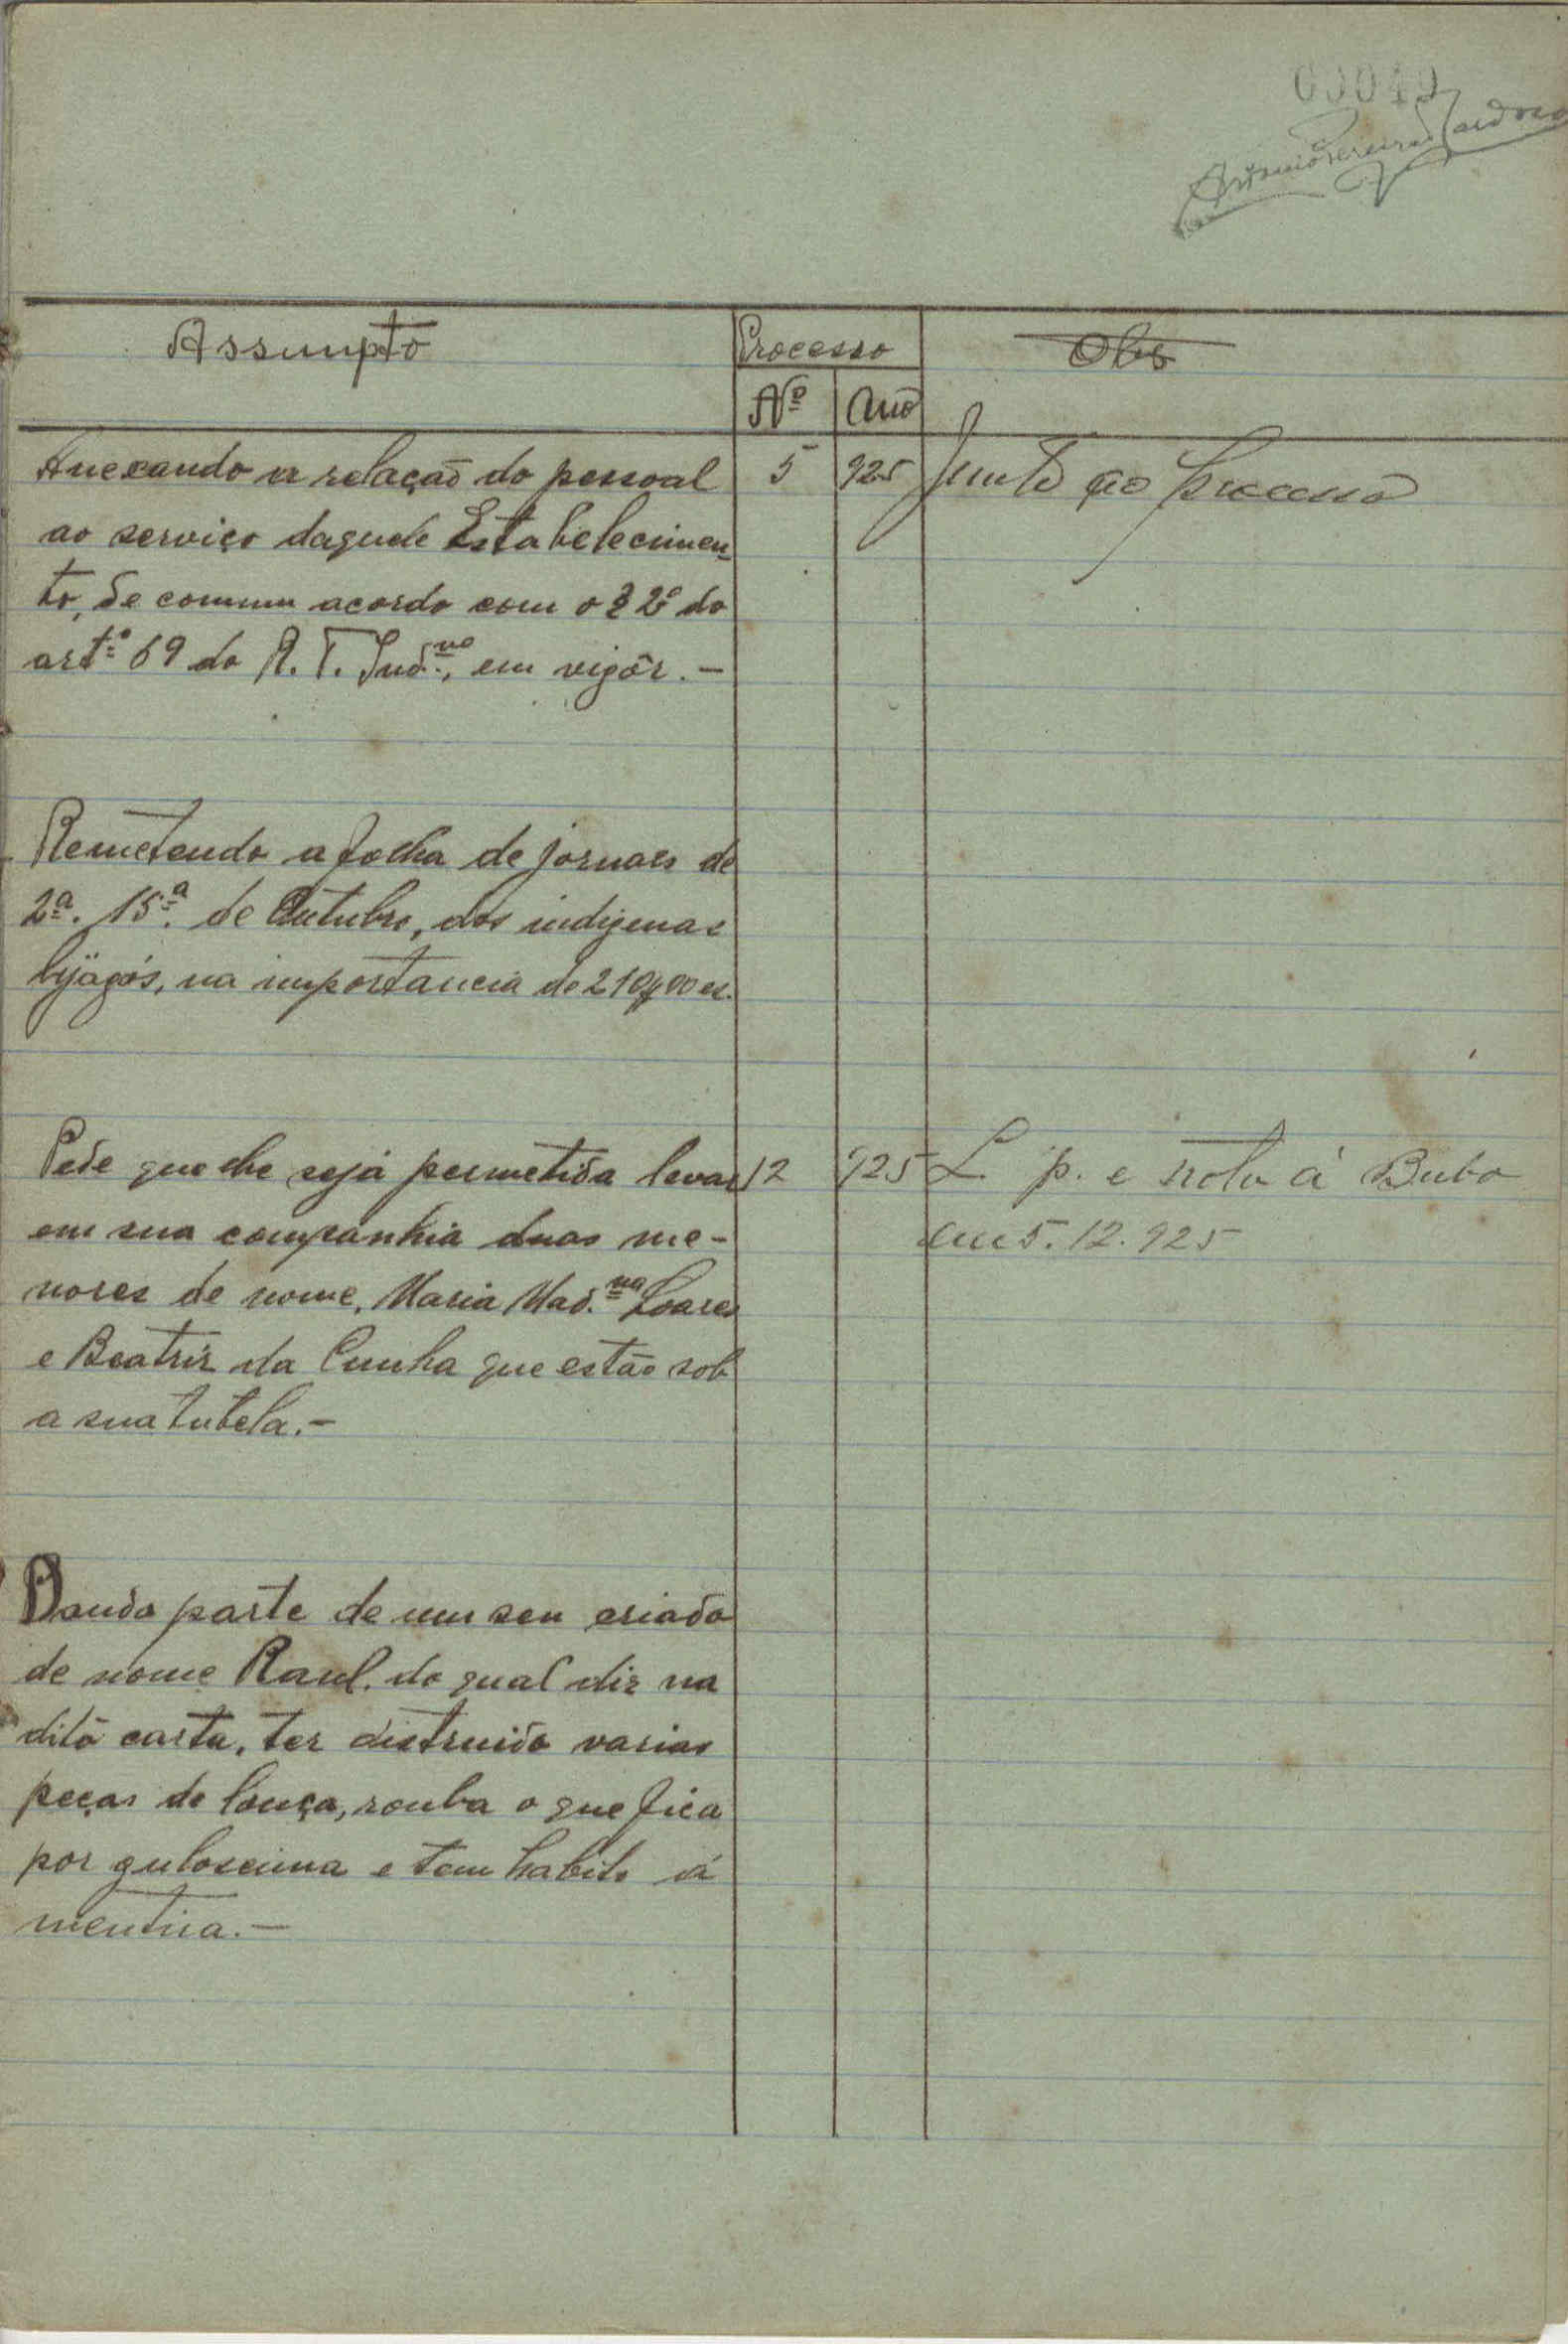 00049
Assumpto
Processo
Obs
Nº
Anò
Anexando a relação do pessoal
5
925
Junto ao processo
ao serviço daquele Estabelecimen-
to, de comum acordo com o § 2º do
artº 69 do R. T. Indno, em vigôr.-
Remetendo a folha de jornaes de
2ª. 15ª. de Outubro, dos indigenas
bijagós, na importancia de 210$00 es.
Pede que lhe seja permetida levar
12
925
L. p. e nota á Buba
em sua companhia duas me-
em 5.12.925
nores de nome, Maria Madna Soares
e Beatriz da Cunha que estão sob
a sua tutela.-
Dando parte de um seu criado
de nome Raul. do qual diz na
dita carta, ter distruido varias
peças de louça, rouba o que fica
por guloseima e tem habito á
mentira.-